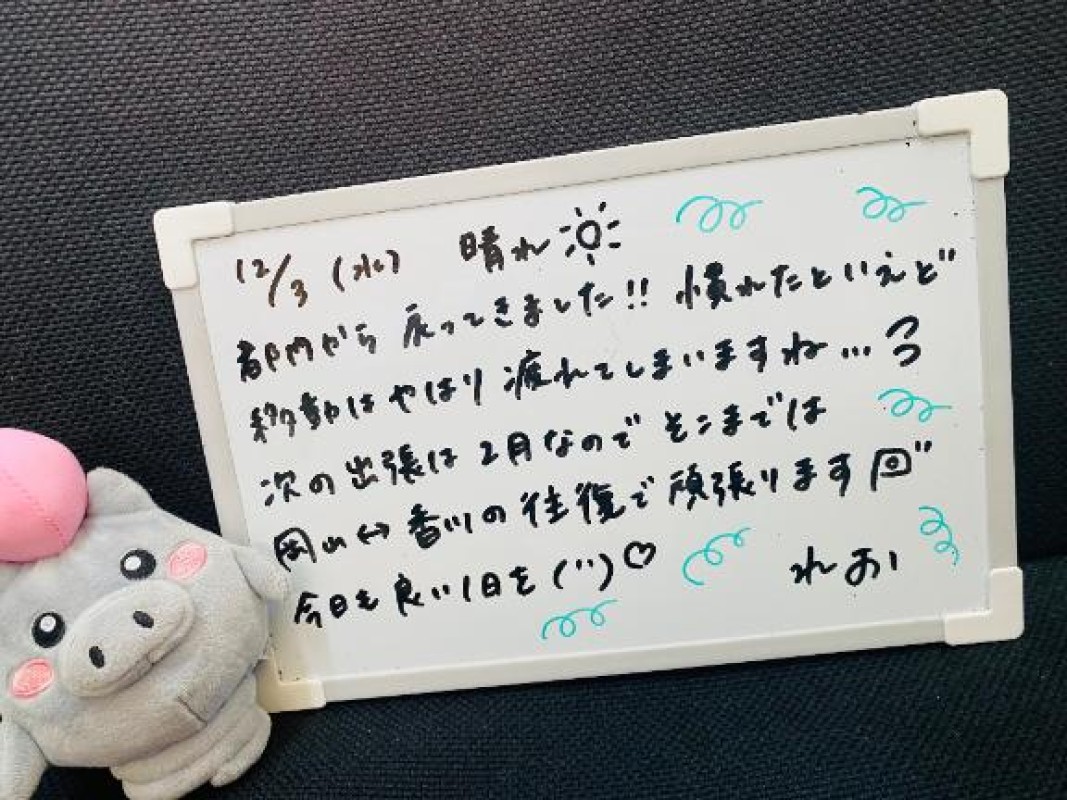 12/3 (水) 晴れ
都内から 戻ってきました!! 慣れたといえど
移動はやはり 疲れてしまいますね…
次の出張は 2月なので そこまでは
岡山↔香川の往復で 頑張ります
今日も 良い1日を (¨) ♡
れあい